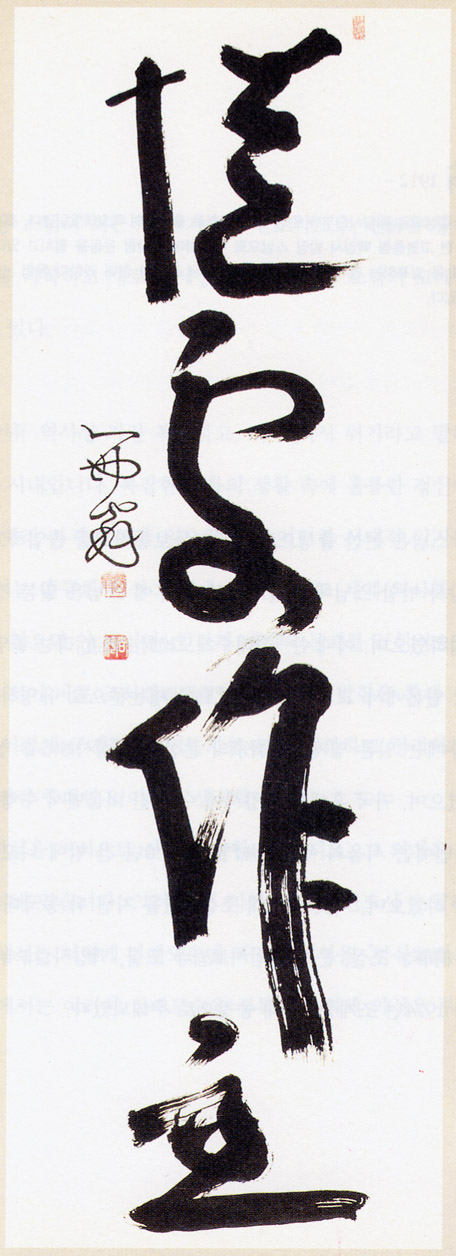 隨處作主
西翁